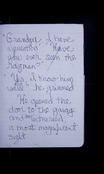 "Grandpa, I have
a question. Have
you ever seen the
"Yes, I know him
well," he grinned.
He opened the
door to the garage
and
a most magnificent
sight.